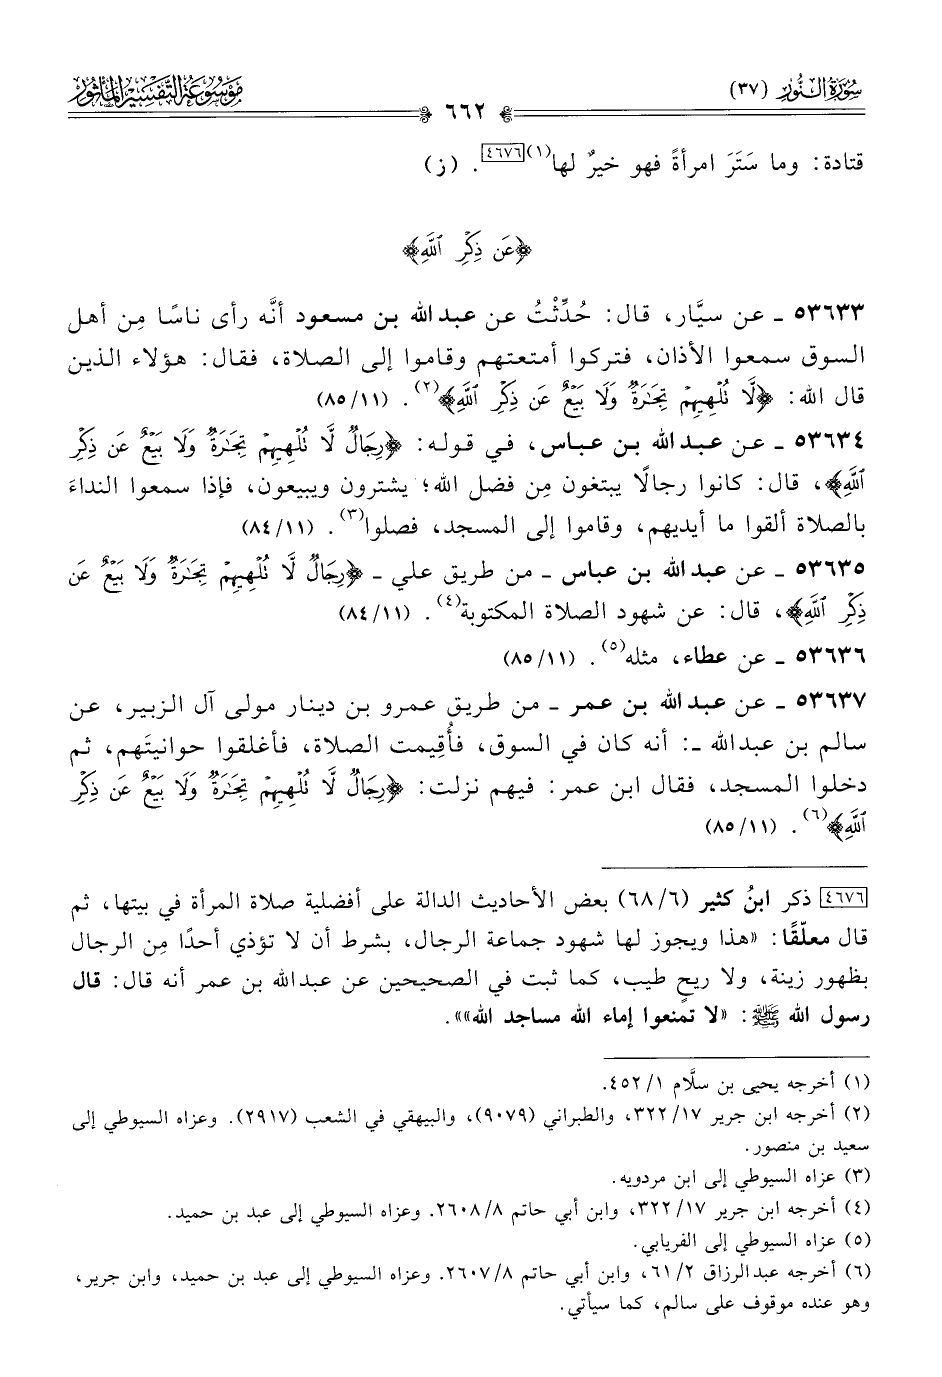 سُورَةُ النُّورِ (٣٧)
٦٦٢
مَوْسُوعَةُ التَّفْسِيرِ المَأْثُور
قتادة: وما سَتَرَ امرأةً فهو خيرٌ لها(١)[٤٦٧٦]. (ز)
﴿عَن ذِكْرِ ٱللَّهِ﴾
٥٣٦٣٣ ـ عن سيَّار، قال: حُدِّثْتُ عن عبد الله بن مسعود أنَّه رأى ناسًا مِن أهل
السوق سمعوا الأذان، فتركوا أمتعتهم وقاموا إلى الصلاة، فقال: هؤلاء الذين
قال الله: ﴿لَّا تُلْهِيهِمْ تِجَٰرَةٌ وَلَا بَيْعٌ عَن ذِكْرِ ٱللَّهِ﴾(٢). (٨٥/١١)
٥٣٦٣٤ ـ عن عبد الله بن عباس، في قوله: ﴿رِجَالٌ لَّا تُلْهِيهِمْ تِجَٰرَةٌ وَلَا بَيْعٌ عَن ذِكْرِ
ٱللَّهِ﴾، قال: كانوا رجالًا يبتغون مِن فضل الله؛ يشترون ويبيعون، فإذا سمعوا النداءَ
بالصلاة ألقوا ما أيديهم، وقاموا إلى المسجد، فصلوا(٣). (٨٤/١١)
٥٣٦٣٥ ـ عن عبد الله بن عباس ـ من طريق علي ـ ﴿رِجَالٌ لَّا تُلْهِيهِمْ تِجَٰرَةٌ وَلَا بَيْعٌ عَن
ذِكْرِ ٱللَّهِ﴾، قال: عن شهود الصلاة المكتوبة(٤). (٨٤/١١)
٥٣٦٣٦ ـ عن عطاء، مثله(٥). (٨٥/١١)
٥٣٦٣٧ ـ عن عبد الله بن عمر ـ من طريق عمرو بن دينار مولى آل الزبير، عن
سالم بن عبد الله ـ: أنه كان في السوق، فأُقِيمت الصلاة، فأغلقوا حوانيتَهم، ثم
دخلوا المسجد، فقال ابن عمر: فيهم نزلت: ﴿رِجَالٌ لَّا تُلْهِيهِمْ تِجَٰرَةٌ وَلَا بَيْعٌ عَن ذِكْرِ
ٱللَّهِ﴾(٦). (٨٥/١١)
[٤٦٧٦] ذكر ابنُ كثير (٦٨/٦) بعض الأحاديث الدالة على أفضلية صلاة المرأة في بيتها، ثم
قال معلّقًا: «هذا ويجوز لها شهود جماعة الرجال، بشرط أن لا تؤذي أحدًا مِن الرجال
بظهور زينة، ولا ريحٍ طيب، كما ثبت في الصحيحين عن عبد الله بن عمر أنه قال: قال
رسول الله ﷺ: «لا تمنعوا إماء الله مساجد الله»».
(١) أخرجه يحيى بن سلَّام ٤٥٢/١.
(٢) أخرجه ابن جرير ٣٢٢/١٧، والطبراني (٩٠٧٩)، والبيهقي في الشعب (٢٩١٧). وعزاه السيوطي إلى
سعيد بن منصور.
(٣) عزاه السيوطي إلى ابن مردويه.
(٤) أخرجه ابن جرير ٣٢٢/١٧، وابن أبي حاتم ٢٦٠٨/٨. وعزاه السيوطي إلى عبد بن حميد.
(٥) عزاه السيوطي إلى الفريابي.
(٦) أخرجه عبد الرزاق ٦١/٢، وابن أبي حاتم ٢٦٠٧/٨. وعزاه السيوطي إلى عبد بن حميد، وابن جرير،
وهو عنده موقوف على سالم، كما سيأتي.